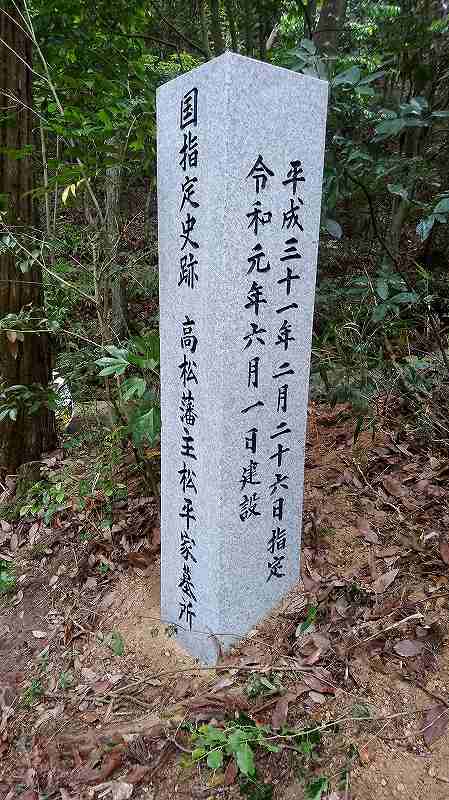 国指定史跡 高松藩主松平家墓所
平成三十一年二月二十六日指定
令和元年六月一日建設